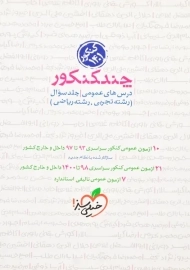 کنکور
۱۴۰۱
چند کنکور
درس‌های عمومی | جلد سؤال
(رشته تجربی، رشته ریاضی)
۱۰ آزمون عمومی کنکور سراسری ۹۳ تا ۹۷ داخل و خارج کشور
۲۱ آزمون عمومی کنکور سراسری ۹۸ تا ۱۴۰۰ داخل و خارج کشور
۷ آزمون عمومی تألیفی استاندارد
خیلی سبز